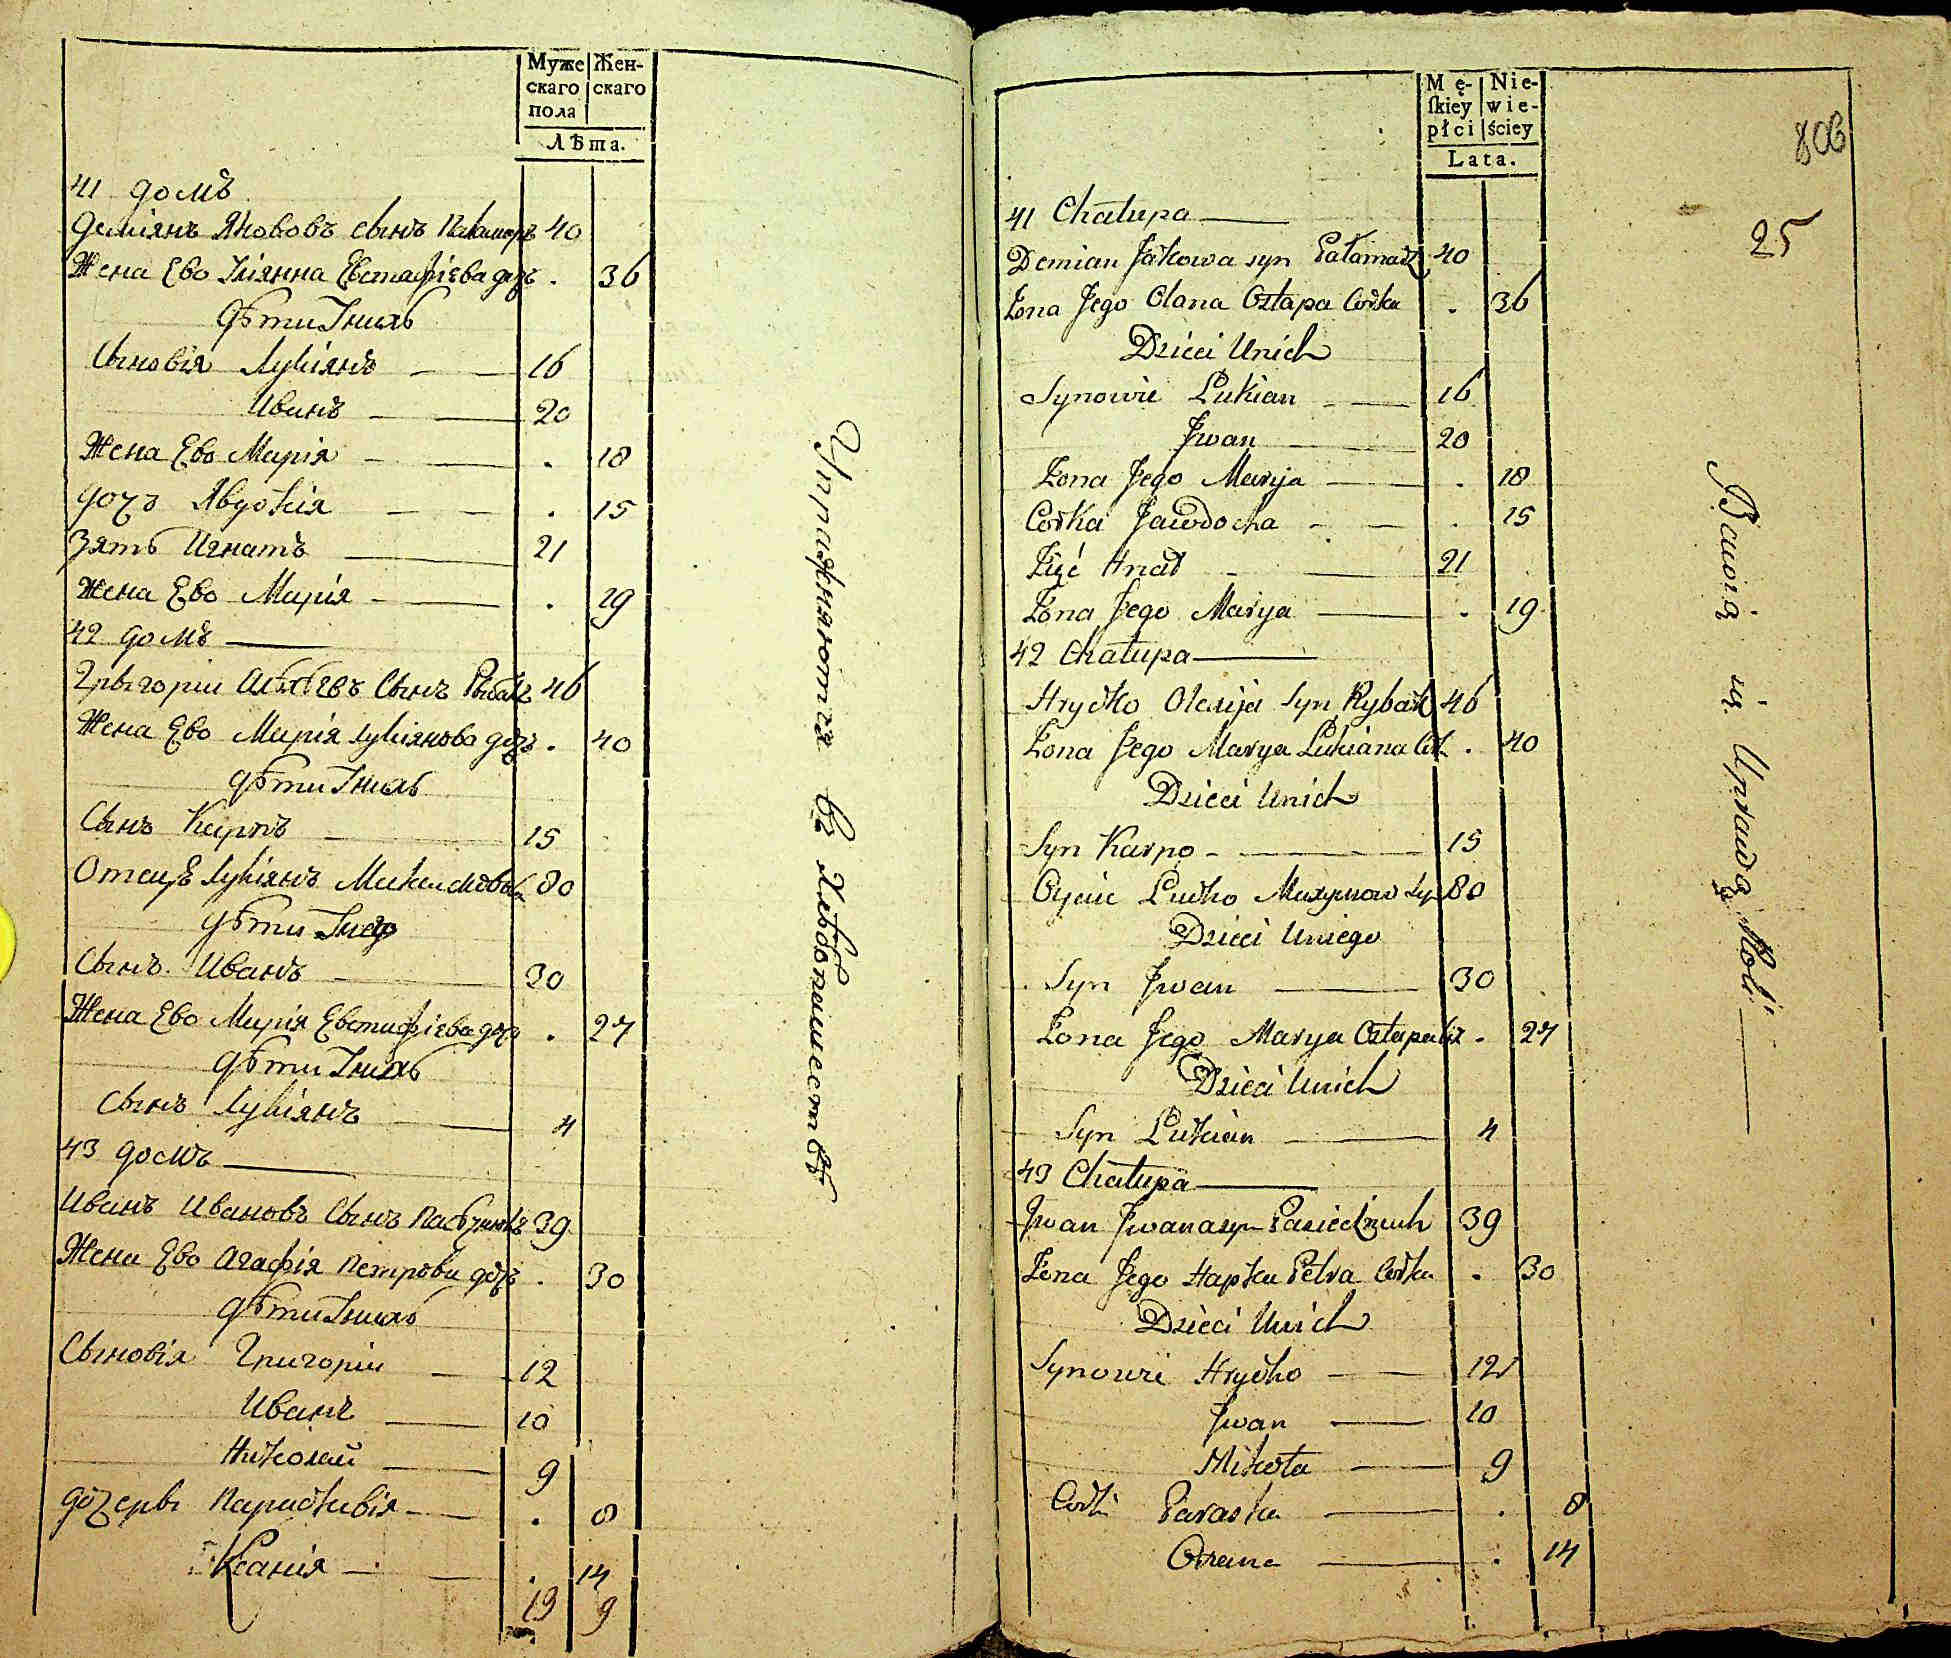 Муже Жен-
скаго скаго
пола
Лѣта.
41 домъ
Деміянъ Якововъ сынъ Паламаръ 40
Жена Ево Уліянна Евстафіева дочь . 36
Дѣти Унихъ
Сыновія Лукіянъ 16
Иванъ 20
Жена Ево Марія . 18
дочь Явдокія . 15
Зять Игнатъ 21
Жена Ево Марія . 19
42 домъ
Грыгорій Сынъ Рыбакъ 46
Жена Ево Марія Лукіянова дочь . 40
Дѣти Унихъ
Сынъ Карпъ 15
Отецъ Лукіянъ 80
Дѣти Унего
Сынъ Иванъ 30
Жена Ево Марія Евстафіева дочь . 27
Дѣти Унихъ
Сынъ Лукіянъ 4
43 домъ
Иванъ Ивановъ Сынъ 39
Жена Ево Агафія Петрова дочь . 30
Дѣти Унихъ
Сыновія Григорій 12
Иванъ 10
Николай 9
дочеры Параскивія . 8
Ксанія . 14
19 9
Упражняются въ Хлебопашествѣ
Mę- Nie-
skiey wie-
płci ściey
Lata.
806
25
41 Chałupa
Demian Jakowa syn Pałamarz 40
Żona Jego Olana Ostapa Corka . 36
Dzieci Unich
Synowie Lukian 16
Jwan 20
Żona Jego Marya . 18
Corka Jawdocha . 15
Zięć Hnat 21
Żona Jego Marya . 19
42 Chałupa
Hryćko Olexija Syn Rybak 46
Żona Jego Marya Lukiana Cor . 40
Dzieci Unich
Syn Karpo 15
Oyciec Lućko Maxymow Syn 80
Dzieci Uniego
Syn Jwan 30
Żona Jego Marya Ostapa Cor . 27
Dzieci Unich
Syn Lukian 4
43 Chałupa
Jwan Jwana syn Pasiecznik 39
Żona Jego Hapka Petra Corka . 30
Dzieci Unich
Synowie Hryćko 12
Jwan 10
Mikoła 9
Corki Paraska . 8
Oxena . 14
Bawią się Uprawą Roli